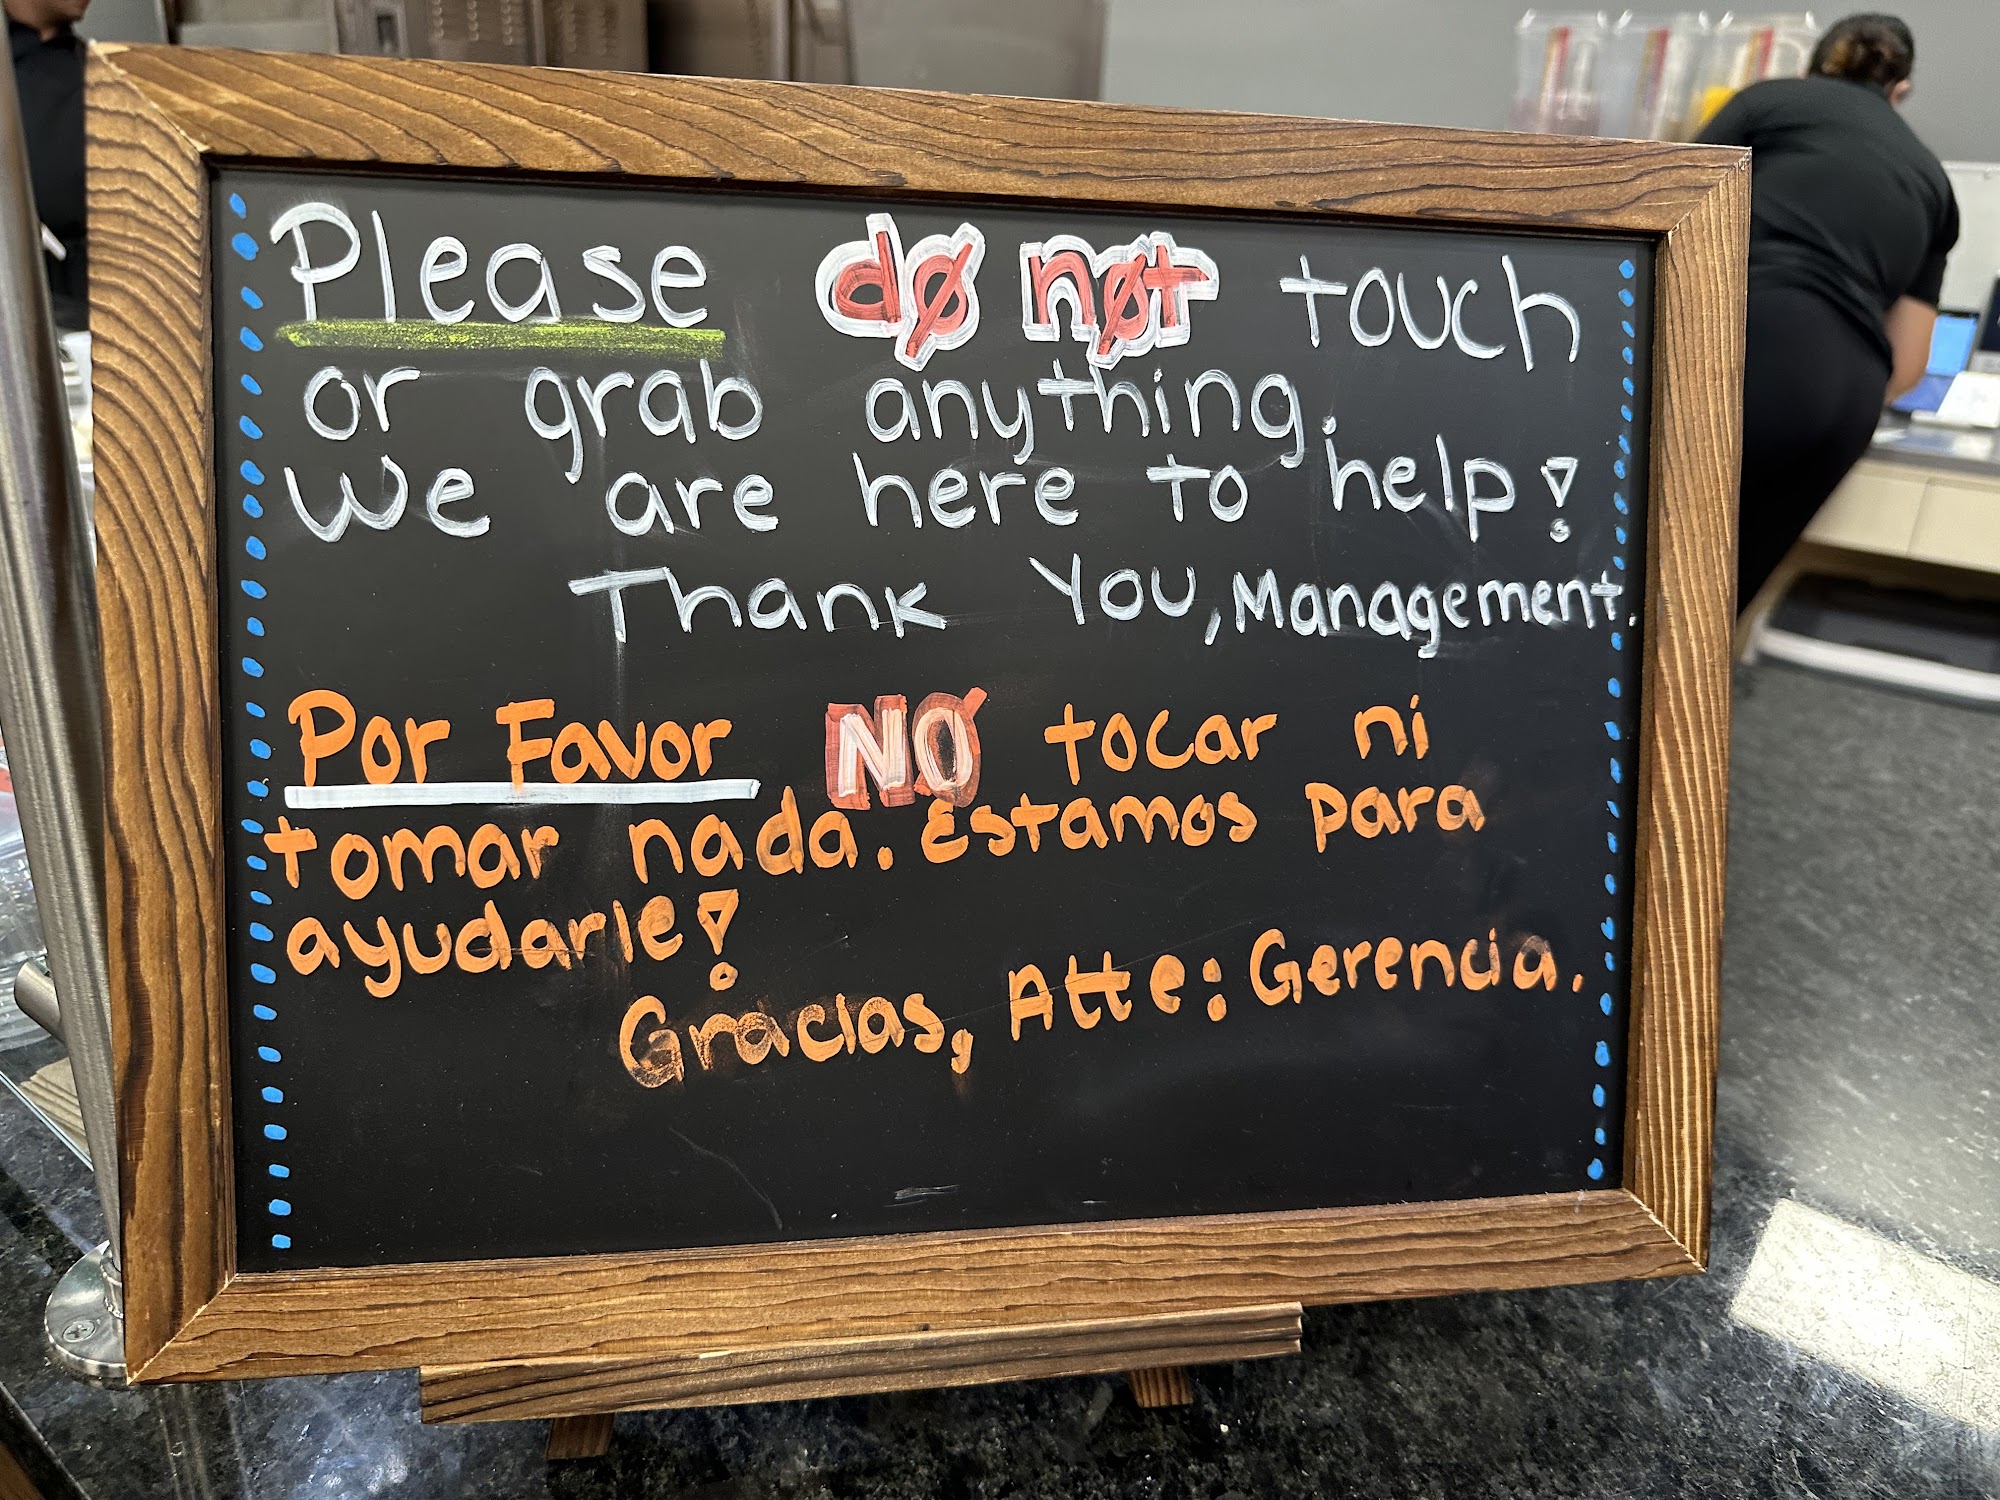 Please do not touch
or grab anything.
We are here to help!
Thank You, Management.
Por Favor NO tocar ni
tomar nada. Estamos para
ayudarle!
Gracias, Atte: Gerencia.